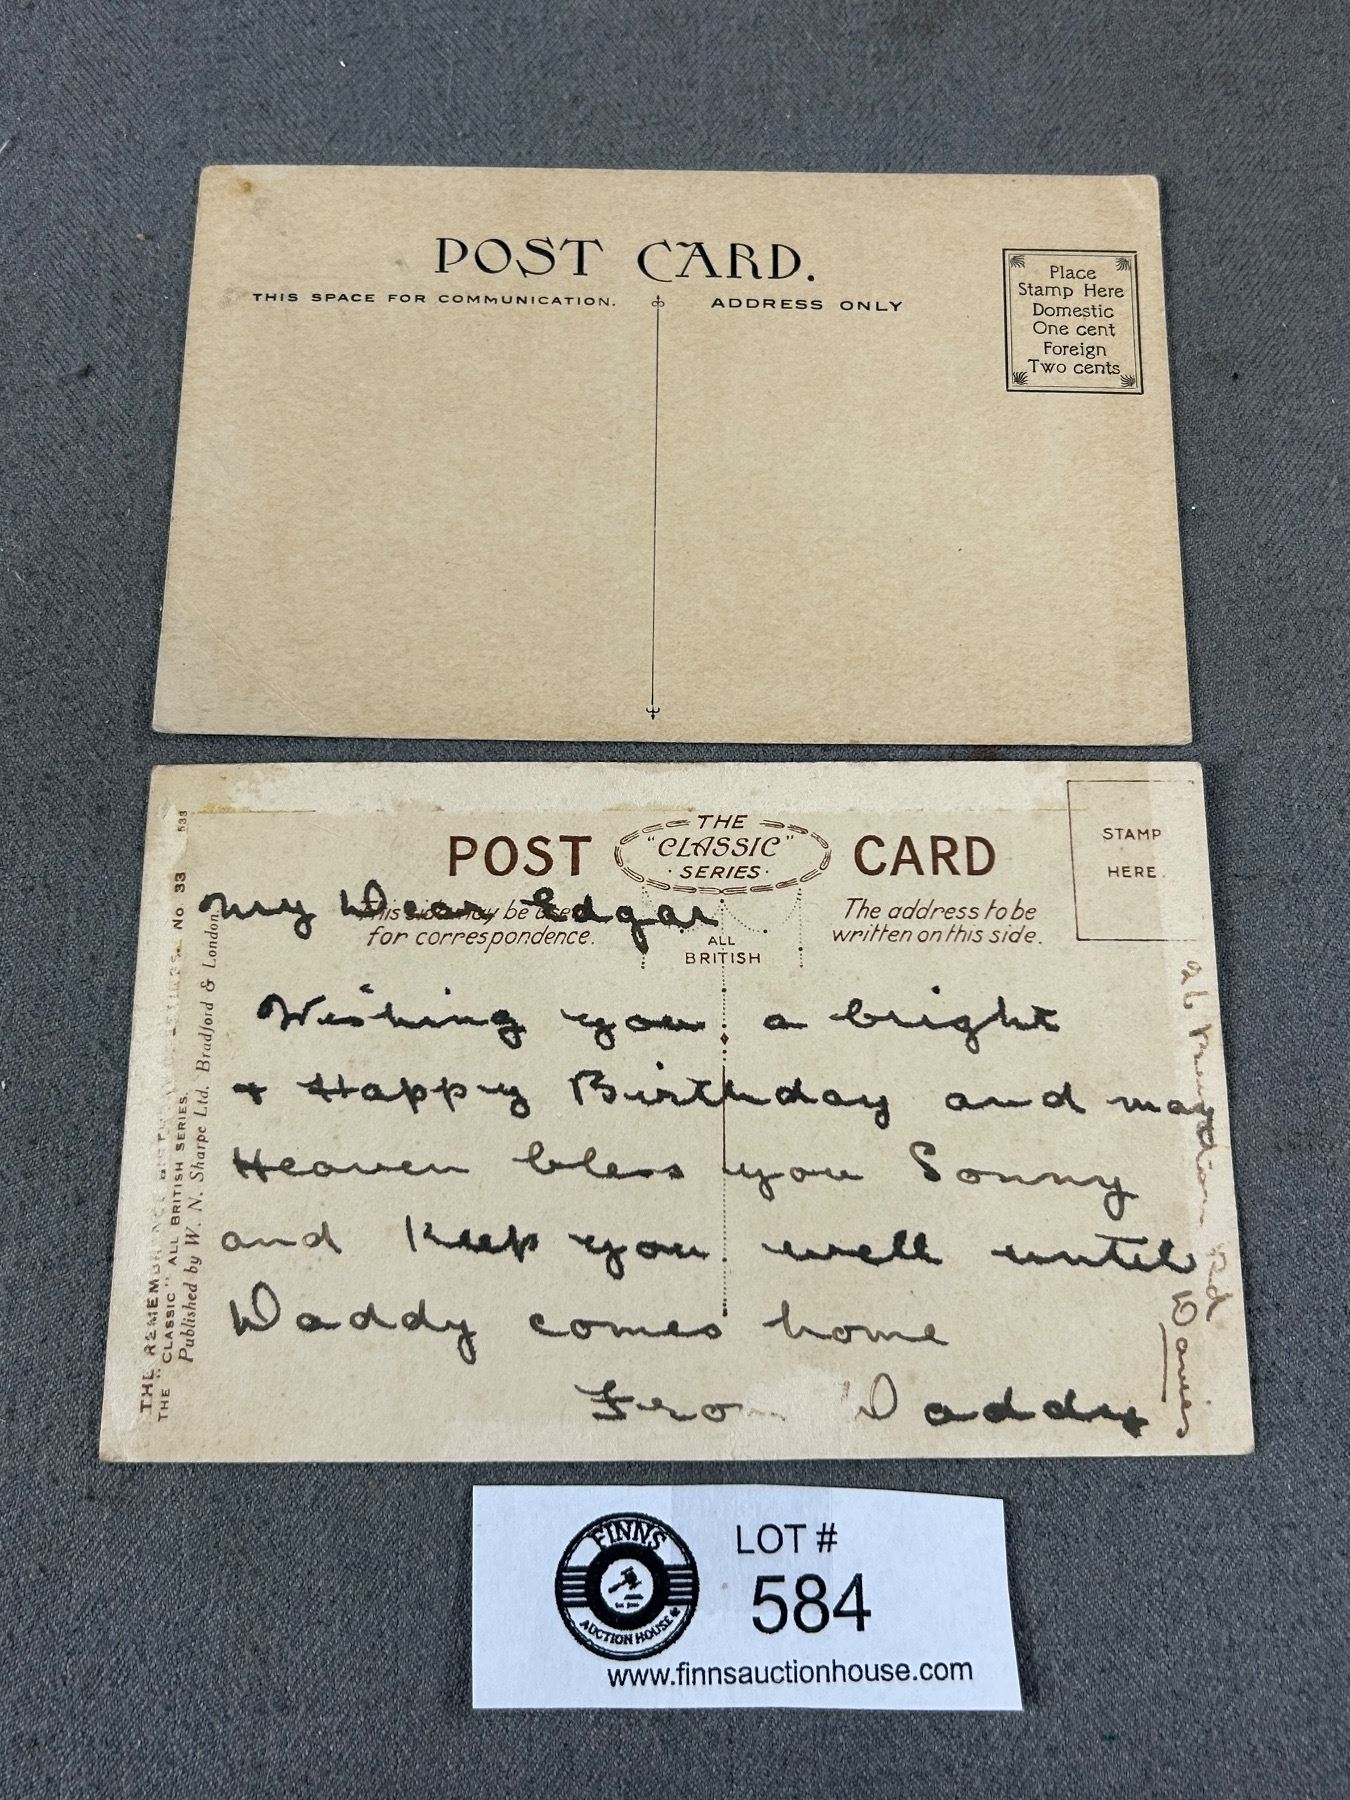 POST CARD.
THIS SPACE FOR COMMUNICATION.
ADDRESS ONLY
Place
Stamp Here
Domestic
One cent
Foreign
Two cents
POST
THE
"CLASSIC"
· SERIES ·
CARD
STAMP
HERE.
for correspondence.
The address to be
written on this side.
ALL
BRITISH
My Dear Edgar
Wishing you a bright
+ Happy Birthday and may
Heaven bless you Sonny
and keep you well until
Daddy comes home
From Daddy
Rd
Davies
No 33
533
THE "CLASSIC" ALL BRITISH SERIES.
Published by W. N. Sharpe Ltd. Bradford & London.
FINNS
AUCTION HOUSE
LOT #
584
www.finnsauctionhouse.com